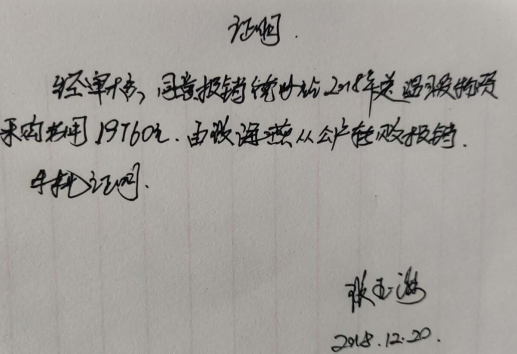 证明.
经审核,同意报销 2018年送温暖物资
采购费用19760元.由张海燕从公户转账报销.
特此证明.
张玉
2018.12.20.